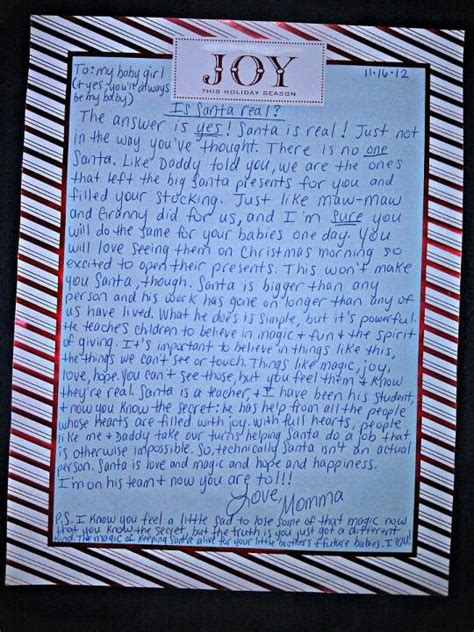 JOY
THIS HOLIDAY SEASON
To: my baby girl
(+ yes, you'll always
be my baby)
11-16-12
Is Santa real?
The answer is yes! Santa is real! Just not
in the way you've thought. There is no one
Santa. Like Daddy told you, we are the ones
that left the big Santa presents for you and
filled your stocking. Just like maw-maw
and Granny did for us, and I'm sure you
will do the same for your babies one day. You
will love seeing them on Christmas morning so
excited to open their presents. This won't make
you Santa, though. Santa is bigger than any
person and his work has gone on longer than any of
us have lived. What he does is simple, but it's powerful.
He teaches children to believe in magic + fun + the spirit
of giving. It's important to believe in things like this,
the things we can't see or touch. Things like magic, joy,
love, hope. You can't see those, but you feel them + know
they're real. Santa is a teacher, + I have been his student,
+ now you know the secret: he has help from all the people
whose hearts are filled with joy. With full hearts, people
like me + Daddy take our turns helping Santa do a job that
is otherwise impossible. So, technically Santa isn't an actual
person. Santa is love and magic and hope and happiness.
I'm on his team + now you are to!!!
Love, Momma
P.S. I know you feel a little sad to lose some of that magic now
that you know the secret, but the truth is you just got a different
kind. The magic of keeping Santa alive for your little brothers + future babies. I